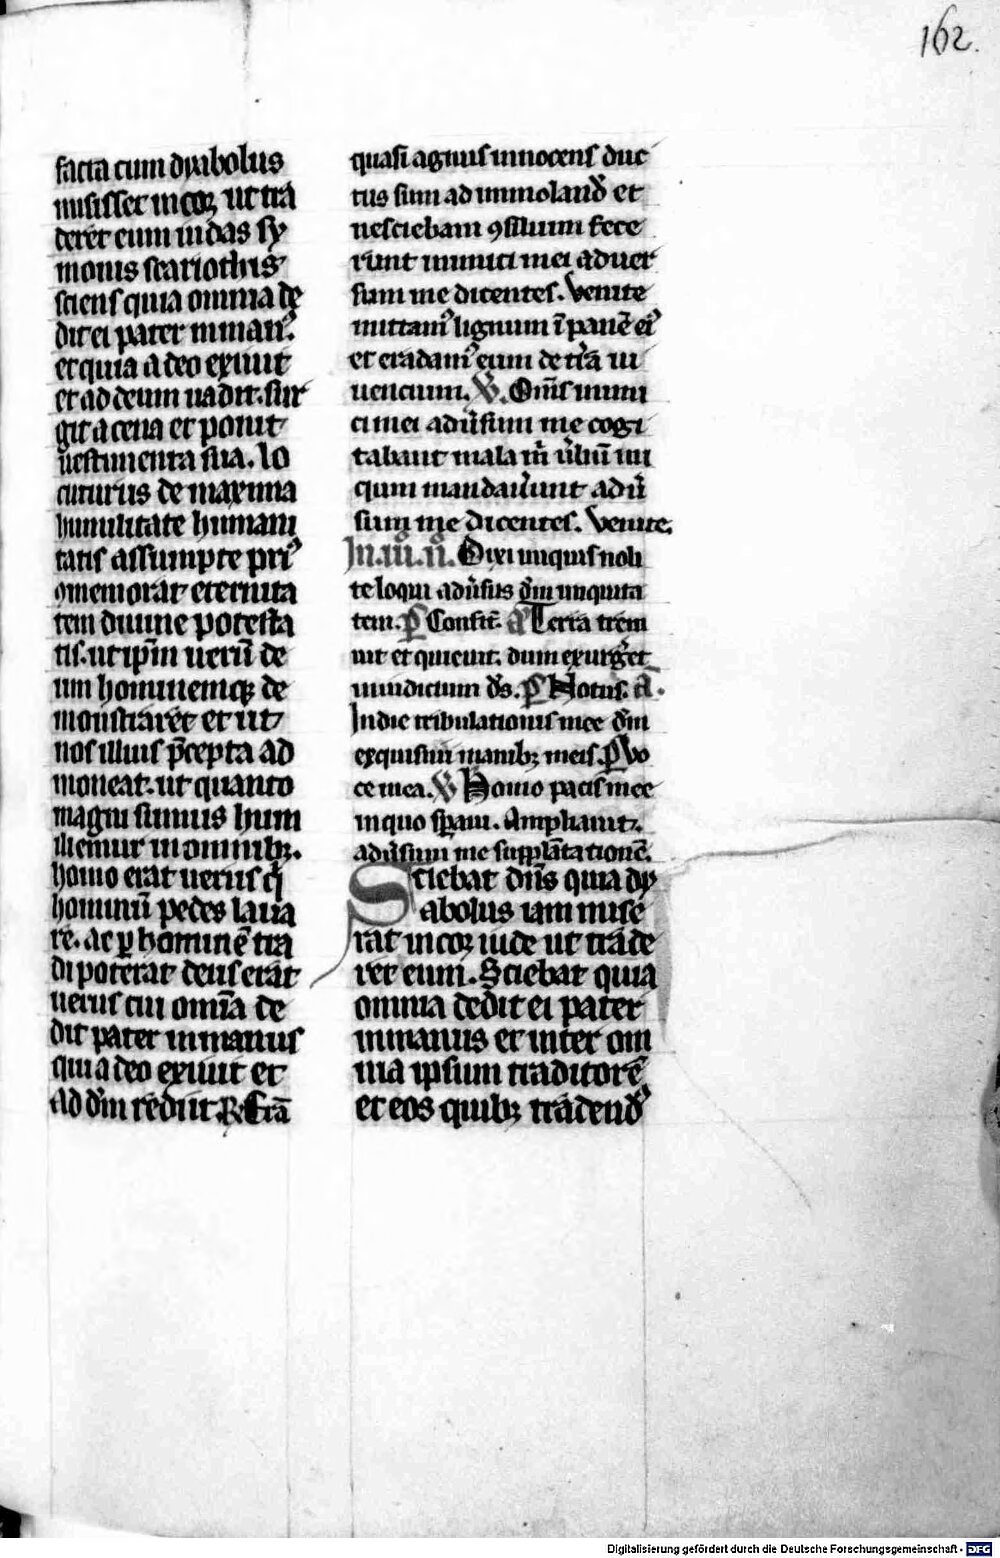 162.
facta cum dyabolus
misisset in coꝝ ut tra
deret eum iudas sy
monis scariothis
sciens quia omnia de
dit ei pater in manꝰ.
et quia a deo exiuit
et ad deum uadit. sur
git a cena et ponit
uestimenta sua. lo
cuturus de maxima
humilitate humani
tatis assumpte priꝰ
ꝯmemorat eternita
tem diuine potesta
tis. ut ip̄m uerū de
um hominemqꝫ de
monstraret et ut
nos illius p̄cepta ad
moneat. ut quanto
magni sumus hum
iliemur in omnibꝫ.
homo erat uerus q̄
hominū pedes laua
re. ac ꝑ hominē tra
di poterat deus erat
uerus cui om̄ia de
dit pater in manus
qui a deo exiuit et
ad dm̄ rediit ꝶ Erā
quasi agnus innocens duc
tus sum ad immoland̄ et
nesciebam ꝯsilium fece
runt inimici mei aduer
sum me dicentes. Venite
mittamꝰ lignum ī panē eiꝰ
et eradamꝰ eum de tr̄a ui
uencium. ℣. Om̄s inimi
ci mei adūsum me cogi
tabant mala m̄ ūbū ini
quum mandauūnt adū
sum me dicentes. Venite.
In .iii. n̄. Dixi iniquis noli
te loqui adūsus dm̄ iniquita
tem. p̄ Confit̄. a Terra trem
uit et quieuit. dum exurg̃et
in iudicium ds̄. p̄ Notus. a.
In die tribulationis mee dm̄
exquisiui manibꝫ meis. p̄ Vo
ce mea. ℣ Homo pacis mee
in quo sꝑaui. Ampliauit.
adūsum me supplātationē.
Sciebat dn̄s quia dy
abolus iam mise
rat in coꝝ iude ut trade
ret eum. Sciebat quia
omnia dedit ei pater
in manus et inter om
nia ipsum traditorē
et eos quibꝫ tradendꝰ
Digitalisierung gefördert durch die Deutsche Forschungsgemeinschaft - DFG